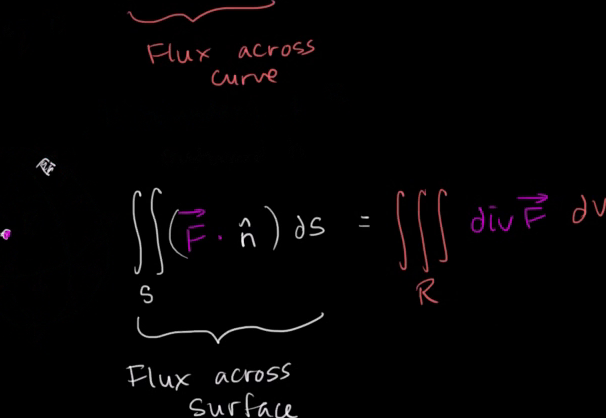 Flux across
curve
∬_S (F⃗ · n̂) dS = ∭_R div F⃗ dv
Flux across
surface